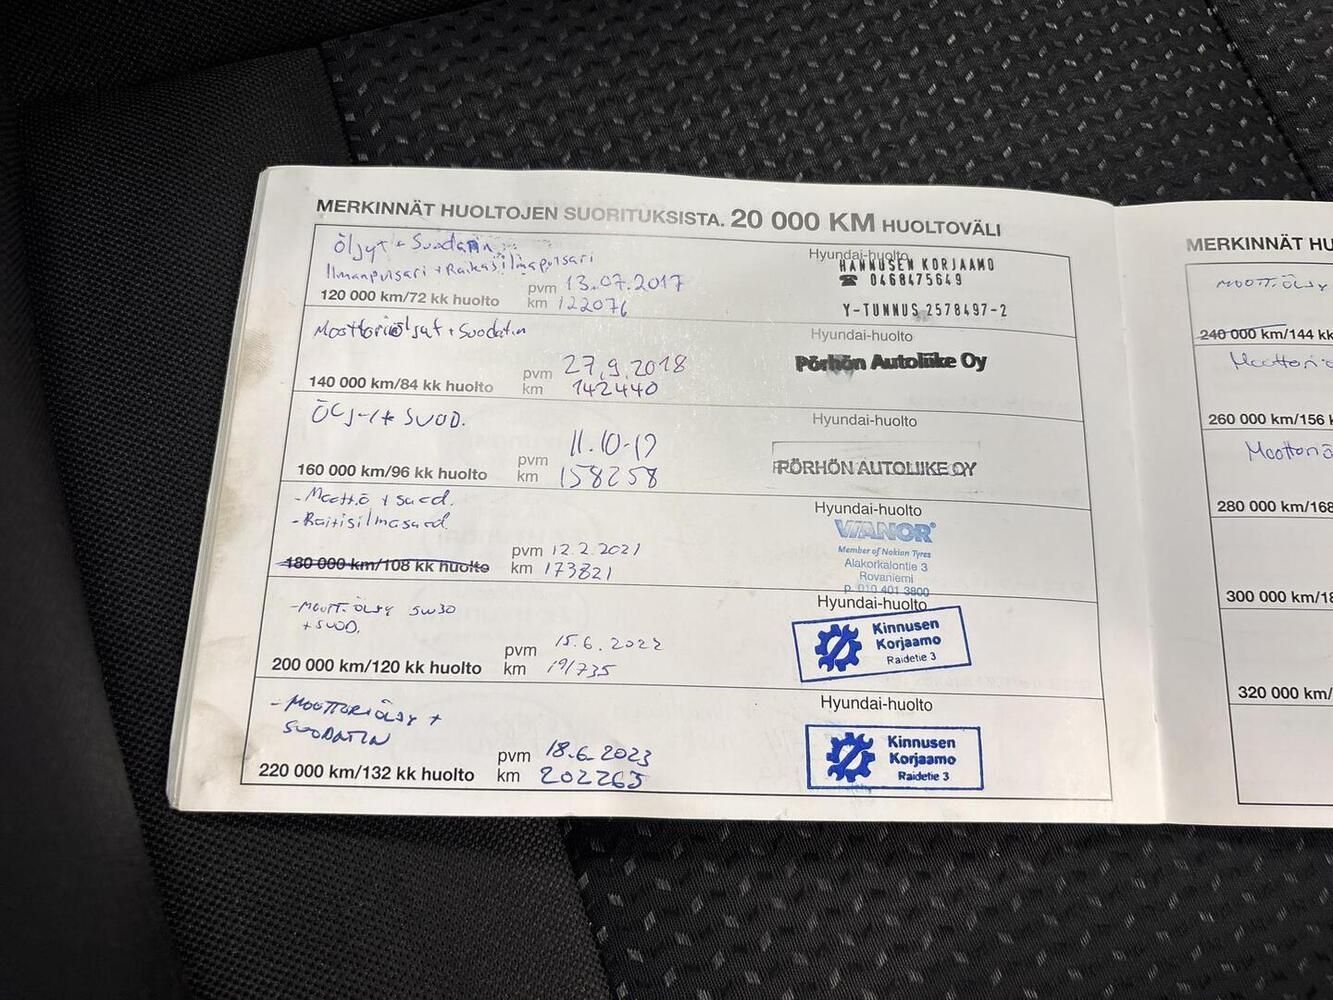 MERKINNÄT HUOLTOJEN SUORITUKSISTA. 20 000 KM HUOLTOVÄLI
Öljyt + Suodatin
Ilmanpusari + Raikasilmapusari
120 000 km/72 kk huolto
pvm 13.07.2017
km 122076
Hyundai-huolto
HANNUSEN KORJAAMO
☎ 0468475649
Y-TUNNUS 2578497-2
Moottoriöljyt + Suodatin
140 000 km/84 kk huolto
pvm 27.9.2018
km 142440
Hyundai-huolto
Pörhön Autoliike Oy
ÖLJYT + SUOD.
160 000 km/96 kk huolto
pvm 11.10-19
km 158258
Hyundai-huolto
PÖRHÖN AUTOLIIKE OY
- Moottö + suod.
- Raitisilmasuod
180 000 km/108 kk huolto
pvm 12.2.2021
km 173821
Hyundai-huolto
VIANOR
Member of Nokian Tyres
Alakorkalontie 3
Rovaniemi
p. 010 401 3800
- MOOTT. ÖLJY 5W30
+ SUOD.
200 000 km/120 kk huolto
pvm 15.6.2022
km 191735
Hyundai-huolto
Kinnusen
Korjaamo
Raidetie 3
- MOOTTORIÖLJY +
SUODATIN
220 000 km/132 kk huolto
pvm 18.6.2023
km 202265
Hyundai-huolto
Kinnusen
Korjaamo
Raidetie 3
MERKINNÄT HU
MOOTT. ÖLJY
240 000 km/144 kk
Moottoriö
260 000 km/156 k
Moottoriö
280 000 km/168
300 000 km/18
320 000 km/